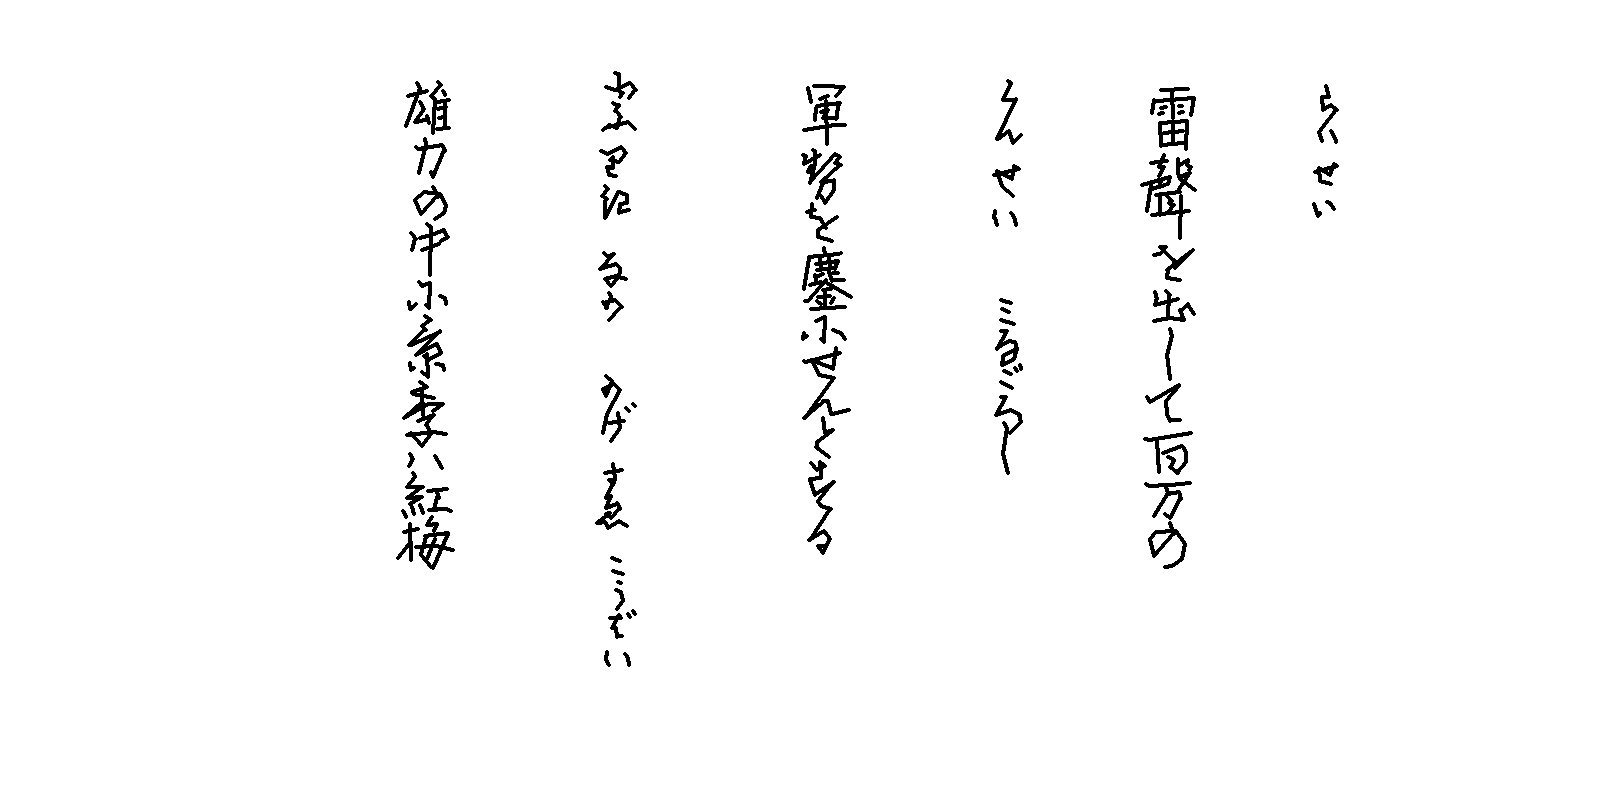 らいせい
雷聲を出して百万の
くんせい みなごろし
軍勢を鏖にせんとする
なか かげ すゑ こうばい
雄力の中に景季ハ紅梅